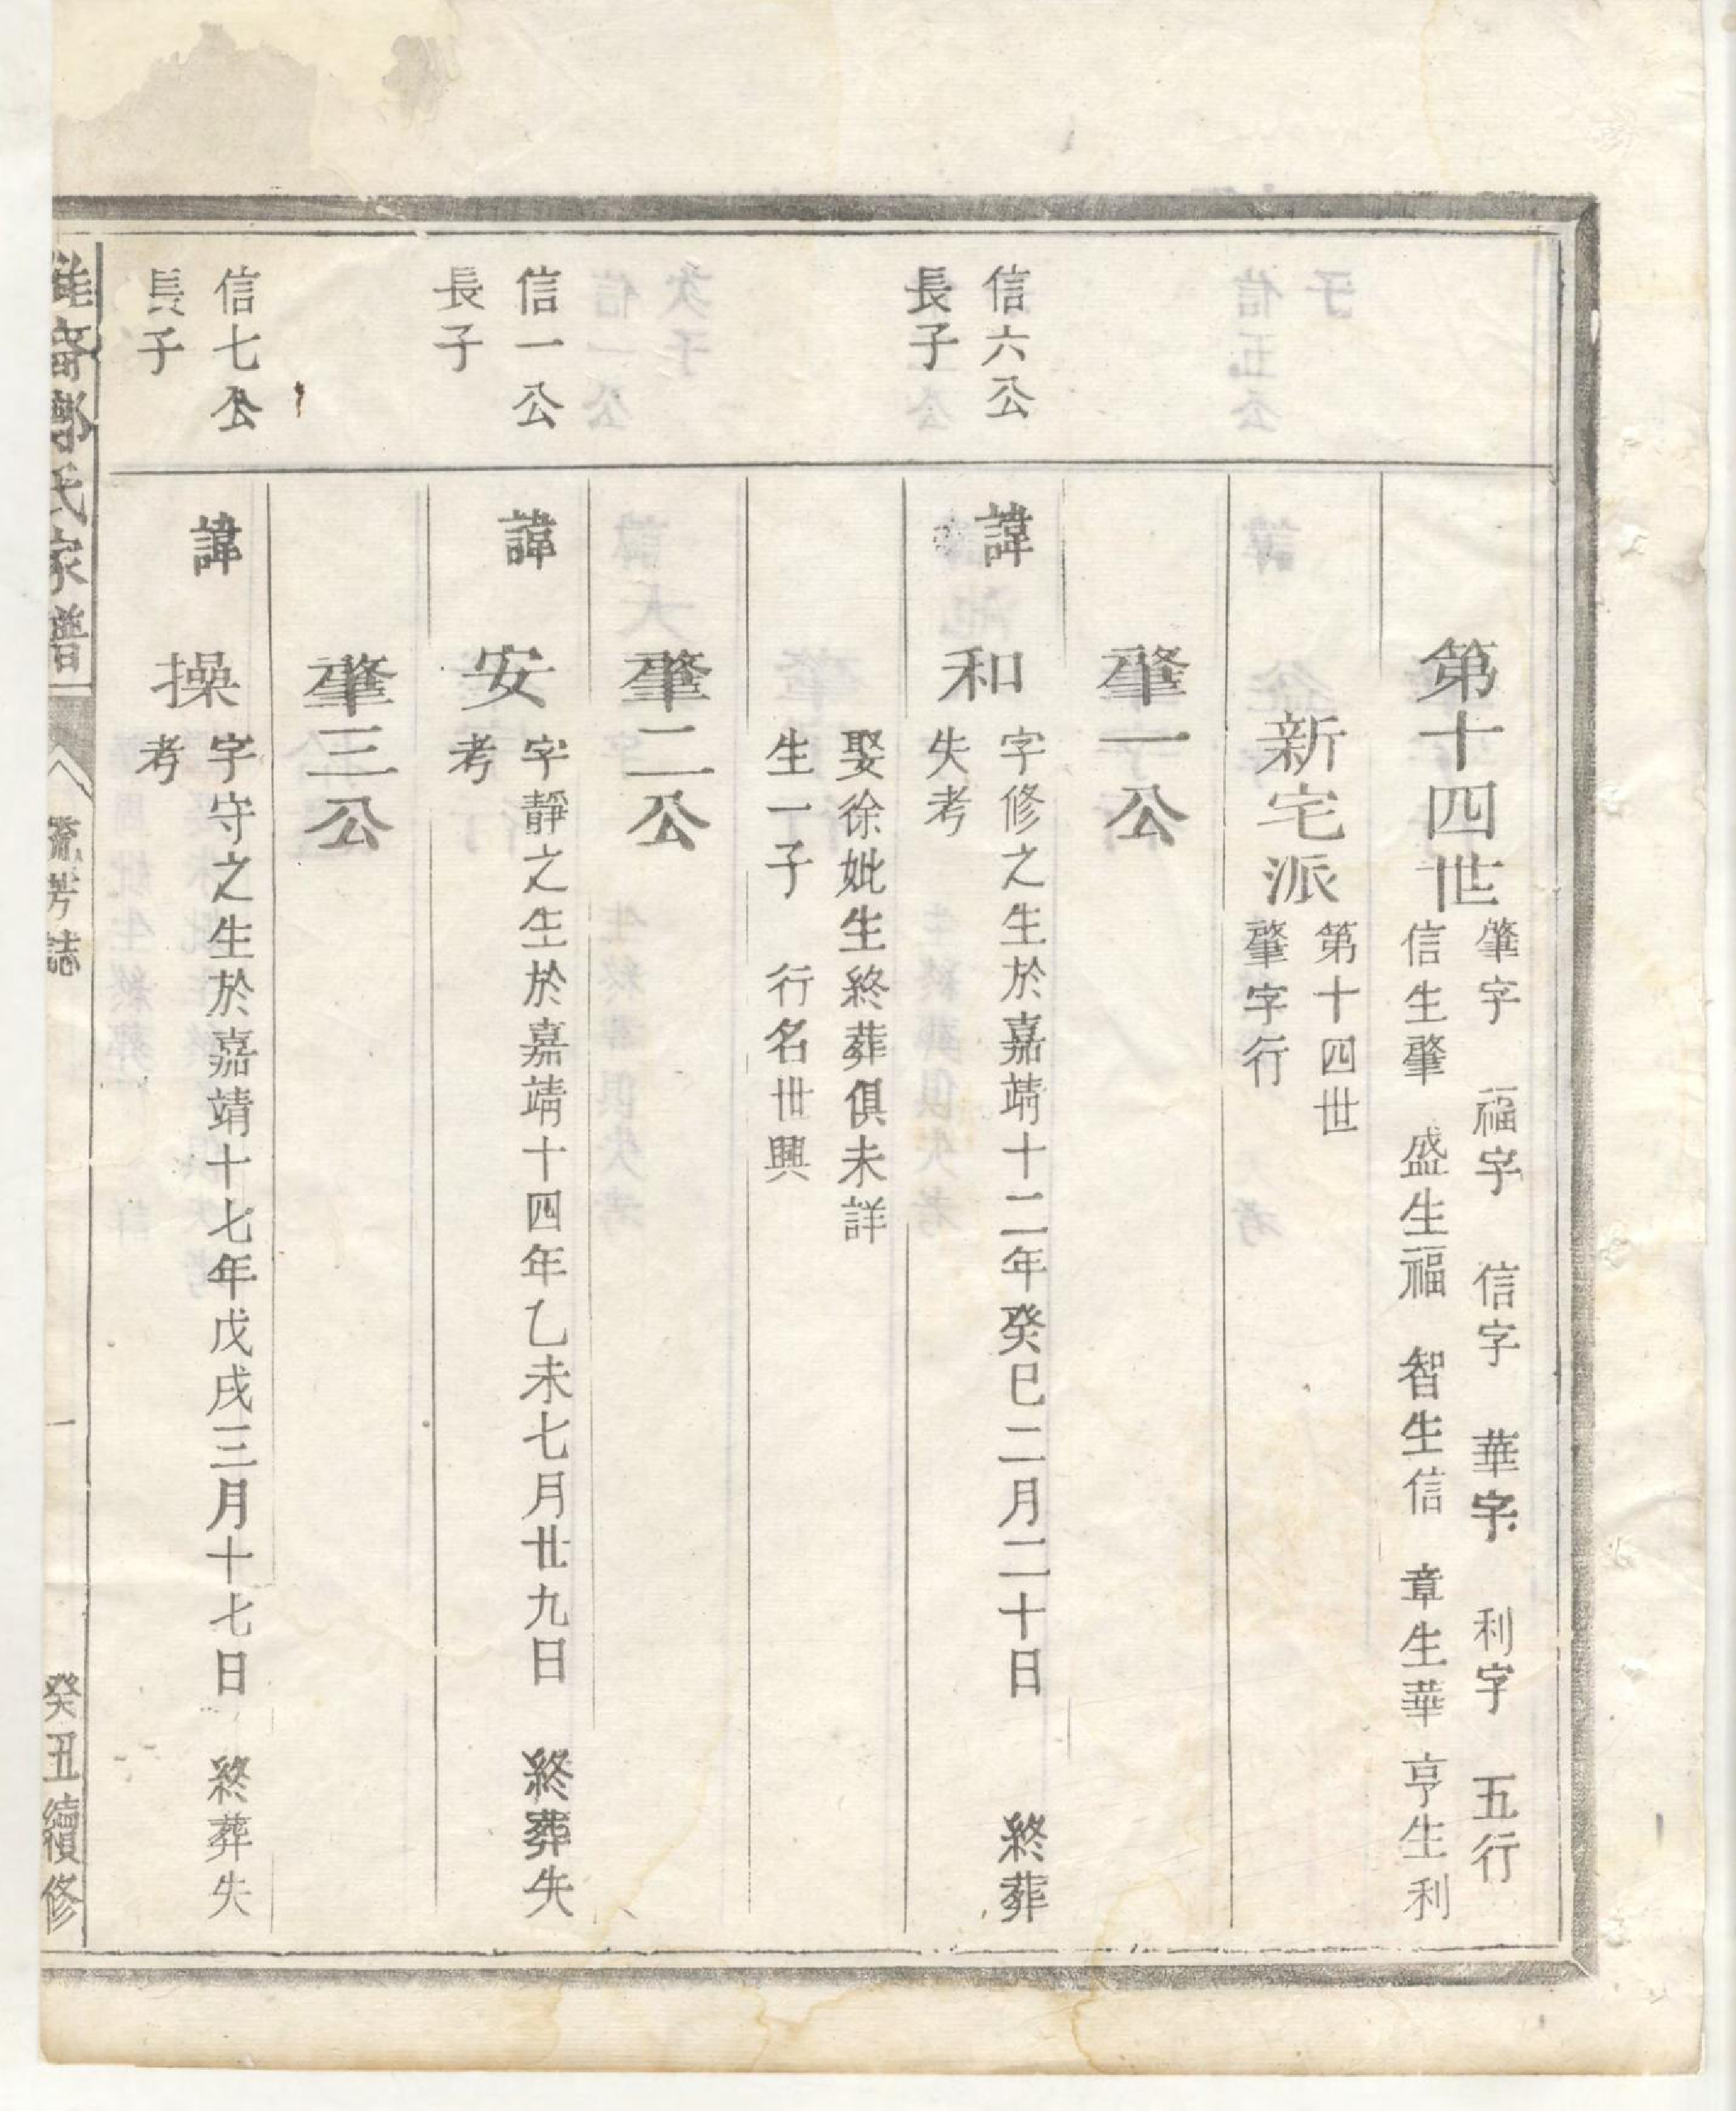 第十四世
肇字 福字 信字 華字 利字 五行
信生肇 盛生福 智生信 章生華 亨生利
新宅派
第十四世
肇字行
肇一公
信六公
長子
諱 和
字修之生於嘉靖十二年癸巳二月二十日 終葬
失考
娶徐妣生終葬俱未詳
生一子 行名世興
肇二公
信一公
長子
諱 安
字靜之生於嘉靖十四年乙未七月廿九日 終葬失
考
肇三公
信七公
長子
諱 操
字守之生於嘉靖十七年戊戌三月十七日 終葬失
考
鄭氏家譜
流芳誌
一
癸丑續修